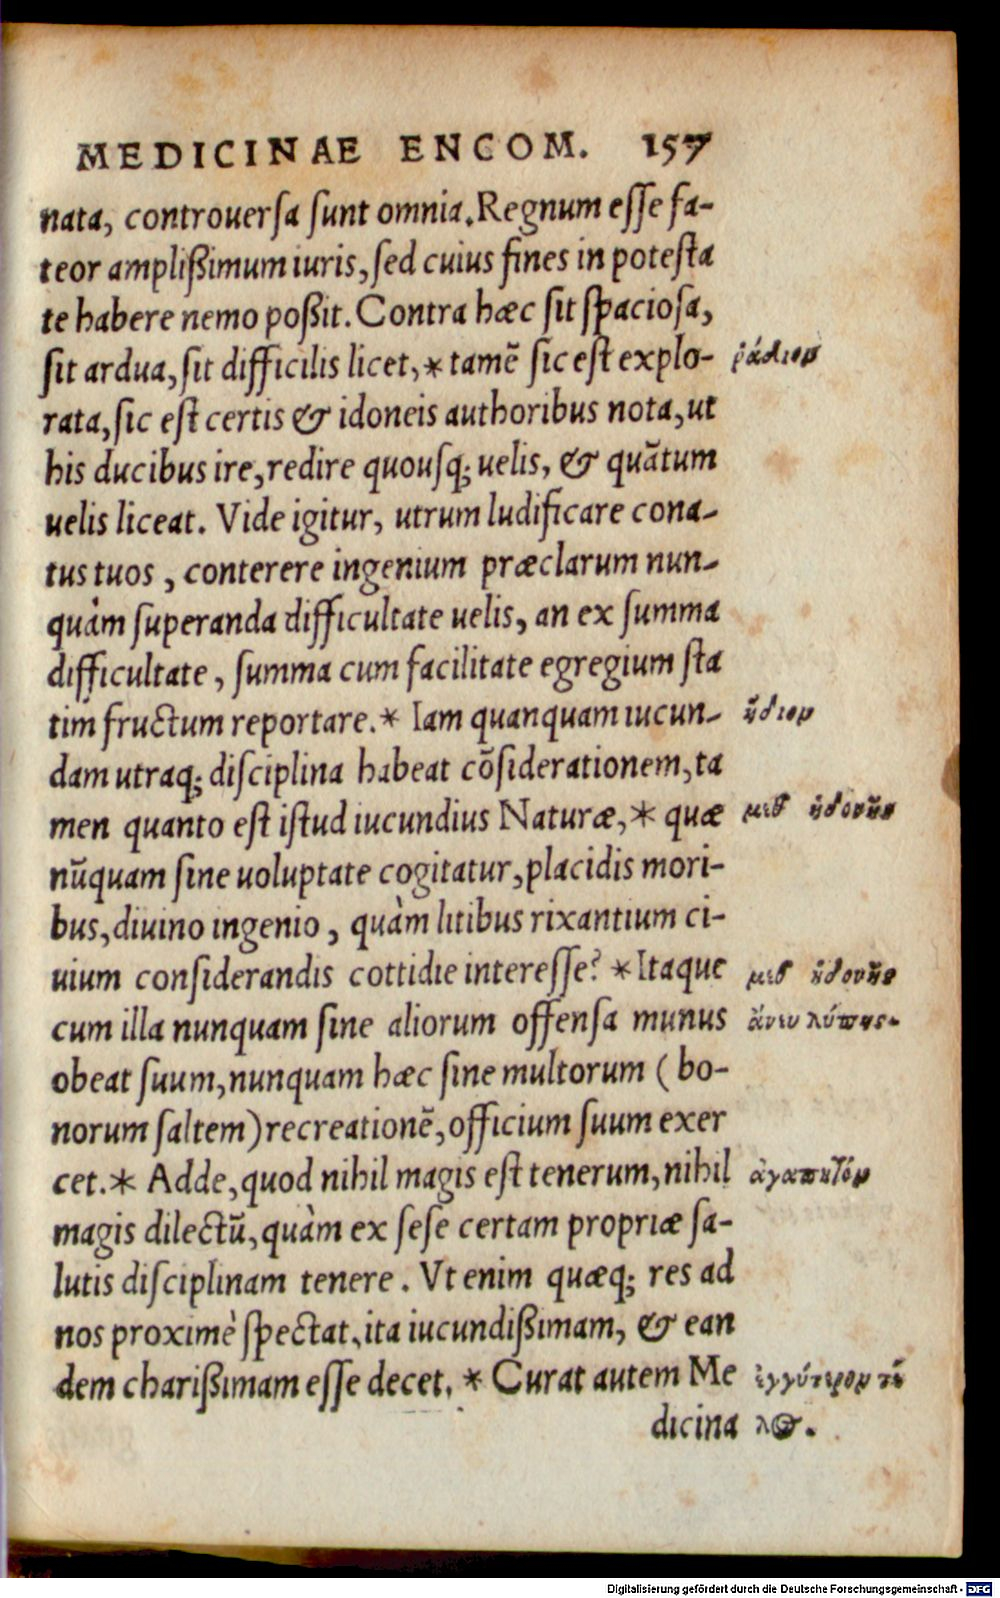 MEDICINAE ENCOM. 157
nata, controuersa sunt omnia. Regnum esse fa-
teor amplißimum iuris, sed cuius fines in potesta
te habere nemo poßit. Contra hæc sit spaciosa,
sit ardua, sit difficilis licet, * tamē sic est explo- ῥάδιον
rata, sic est certis & idoneis authoribus nota, ut
his ducibus ire, redire quousq; uelis, & quātum
uelis liceat. Vide igitur, utrum ludificare cona-
tus tuos, conterere ingenium præclarum nun-
quàm superanda difficultate uelis, an ex summa
difficultate, summa cum facilitate egregium sta
tim fructum reportare. * Iam quanquam iucun- ἥδιον
dam utraq; disciplina habeat cōsiderationem, ta
men quanto est istud iucundius Naturæ, * quæ μεθ ἡδονῆς
nūquam sine uoluptate cogitatur, placidis mori-
bus, diuino ingenio, quàm litibus rixantium ci-
uium considerandis cottidie interesse? * Itaque μεθ ἡδονῆς
cum illa nunquam sine aliorum offensa munus ἄνευ λύπης.
obeat suum, nunquam hæc sine multorum (bo-
norum saltem) recreationē, officium suum exer
cet. * Adde, quod nihil magis est tenerum, nihil ἀγαπητόν
magis dilectū, quàm ex sese certam propriæ sa-
lutis disciplinam tenere. Vt enim quæq; res ad
nos proximè spectat, ita iucundißimam, & ean
dem charißimam esse decet. * Curat autem Me ἐγγύτερον τέ
dicina λος.
Digitalisierung gefördert durch die Deutsche Forschungsgemeinschaft - DFG